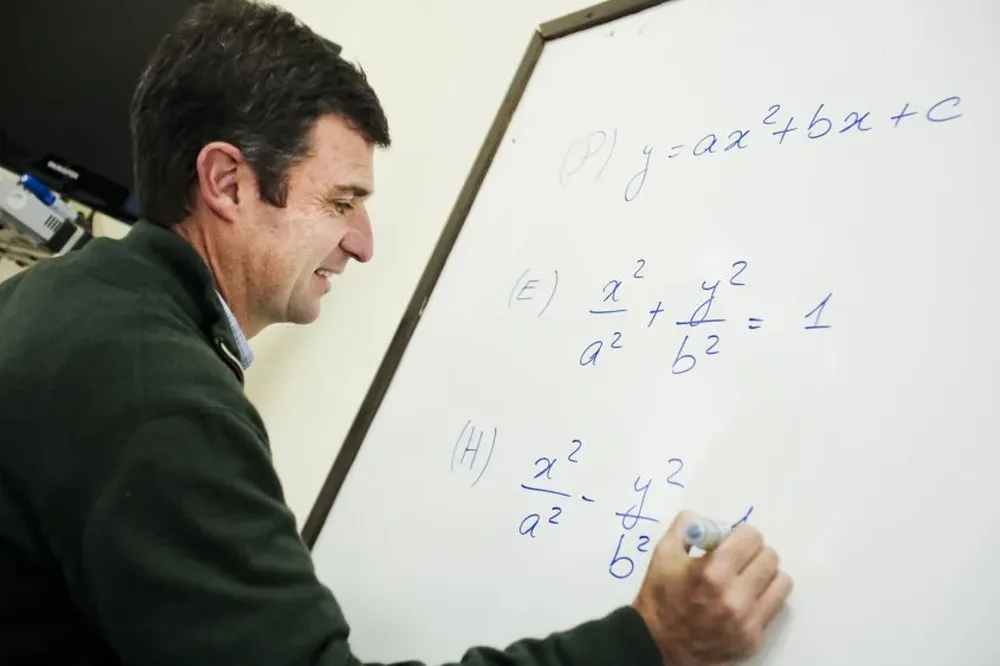 (P) y = ax² + bx + c
(E) x²/a² + y²/b² = 1
(H) x²/a² - y²/b² 1